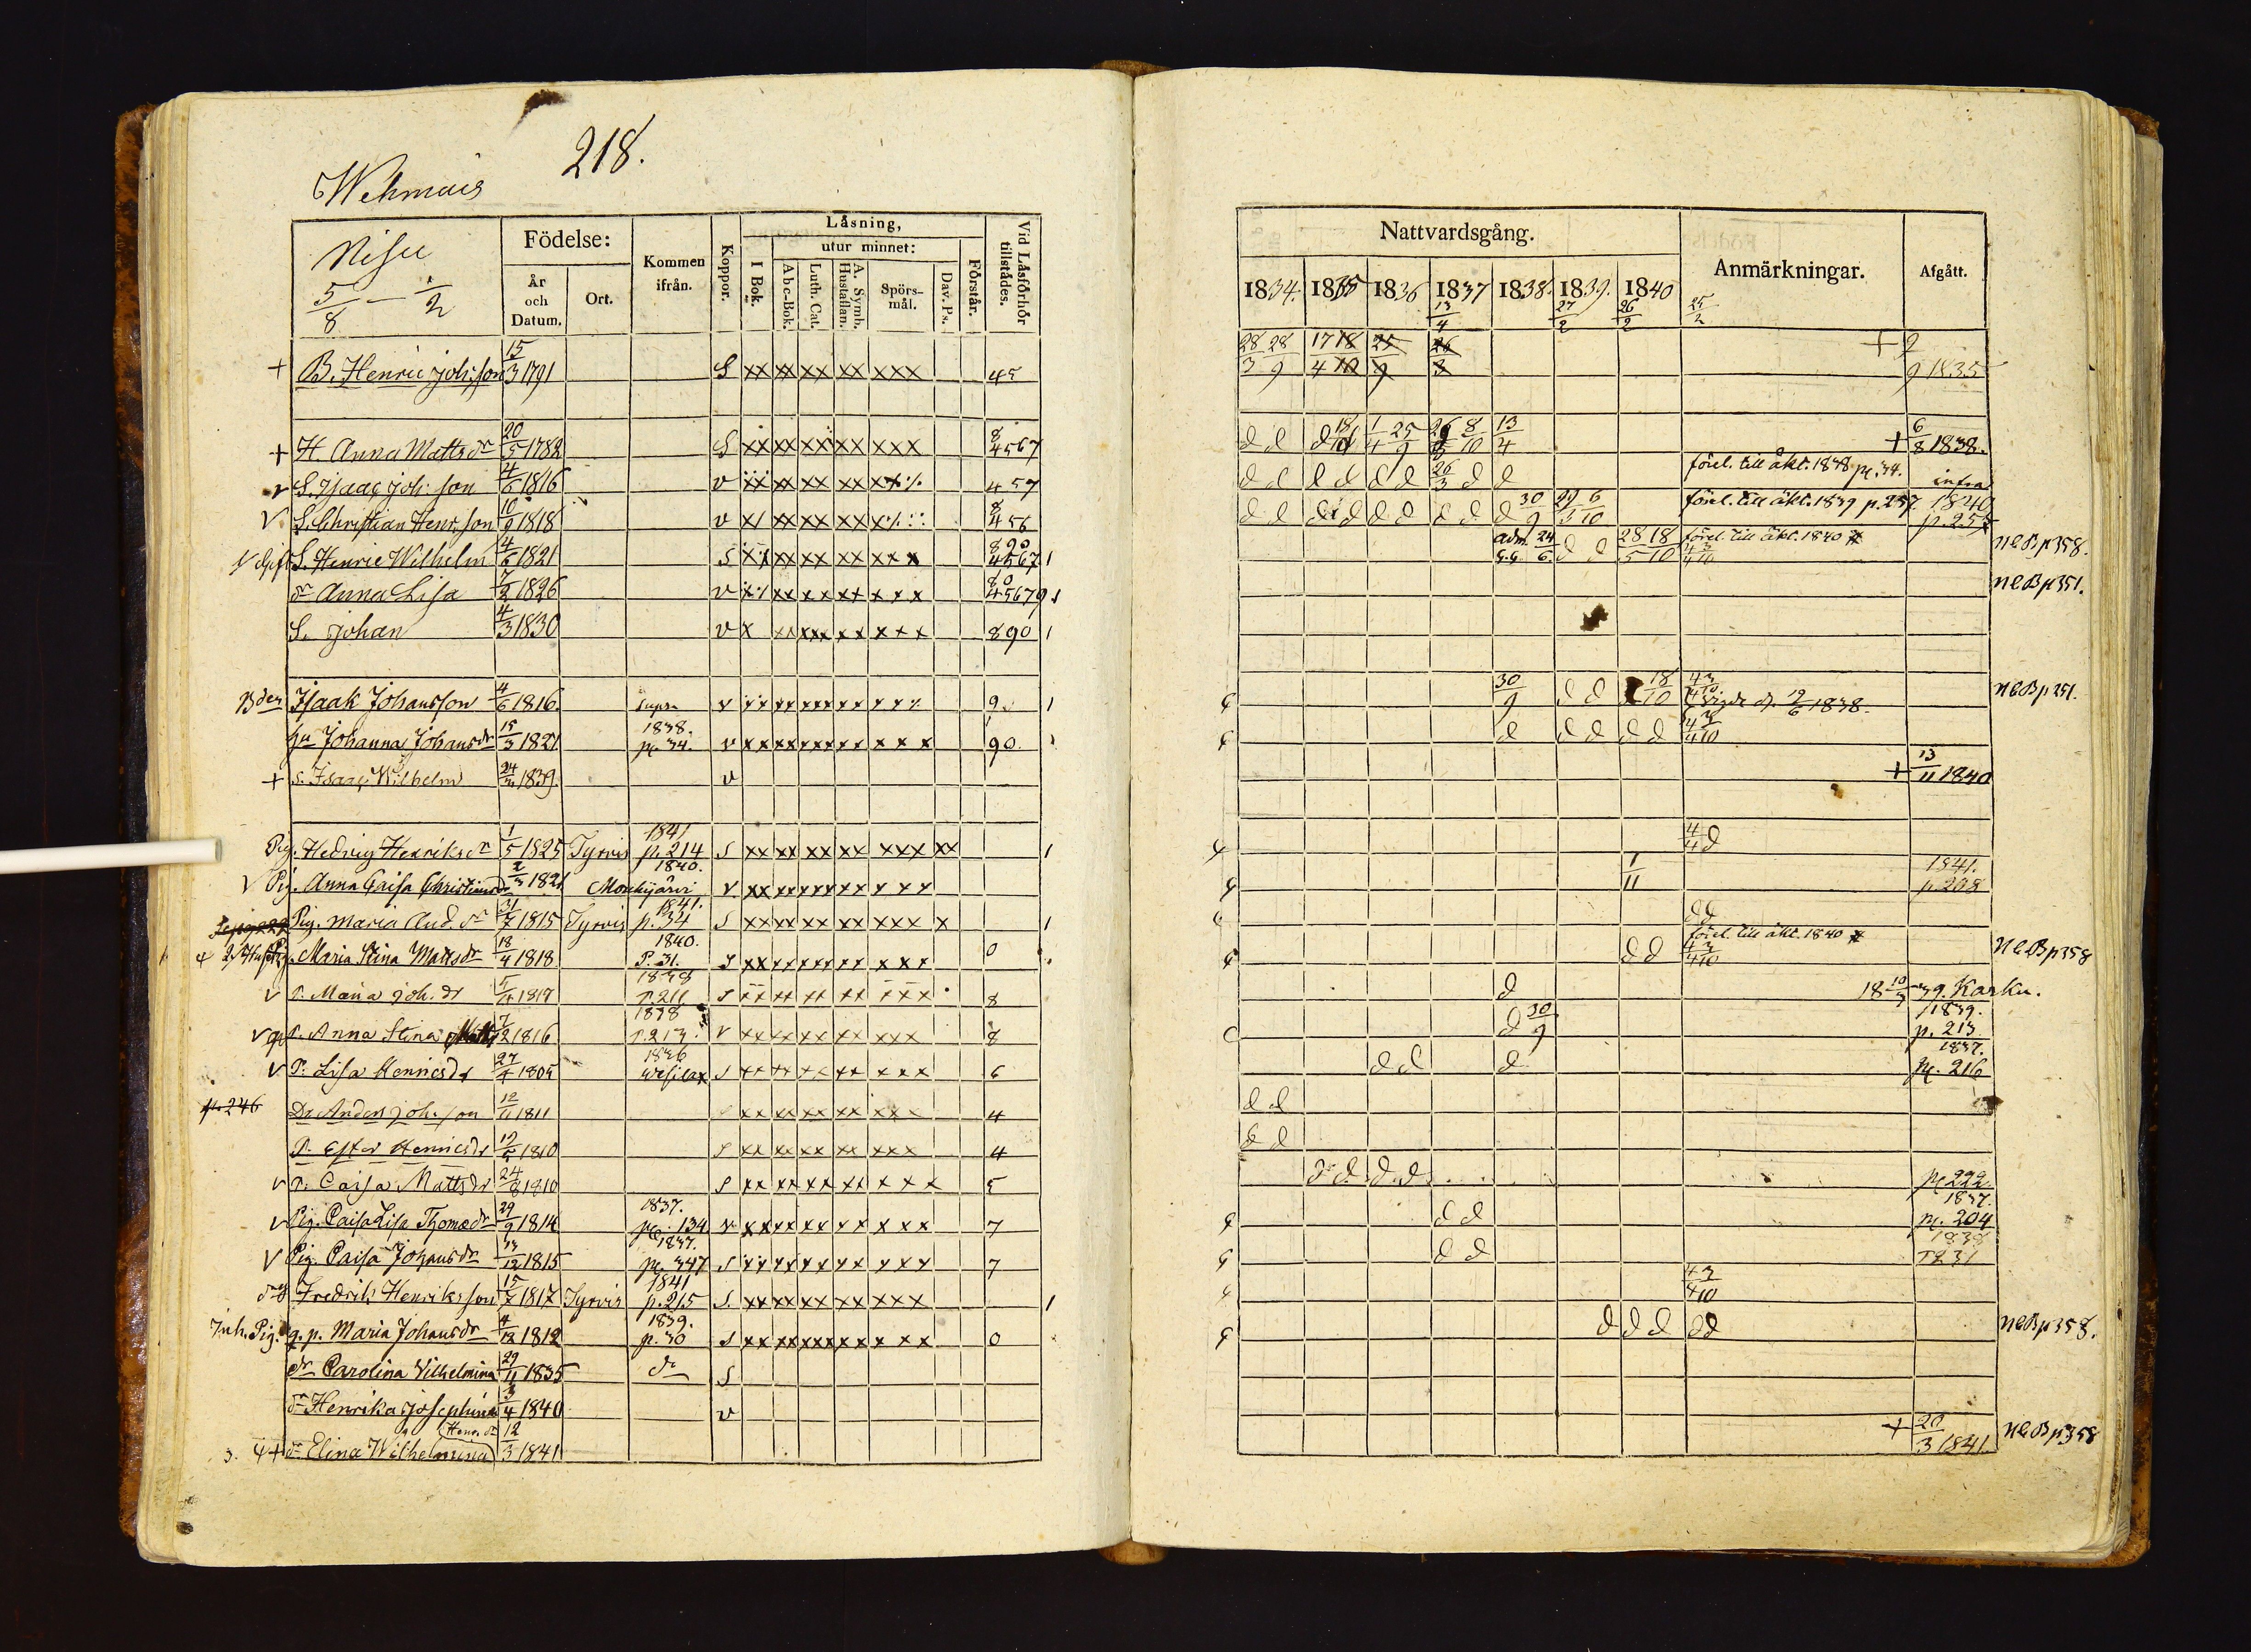 218.
Wehmais
Nisu
5/8 — 1/2
Födelse:
År och Datum.
Ort.
Kommen ifrån.
Koppor.
Läsning,
I Bok.
utur minnet:
Abc-Bok.
Luth. Cat.
A. Symb. Hustaflan.
Spörs-mål.
Dav. Ps.
Förstår.
Vid Läsförhör tillstädes.
+ B. Henric Joh:son 15/3 1791 S xx xx xx xx xxx 45
+ H. Anna Matts dr 20/5 1782 S xx xx xx xx xxx 8 4567
v S. Isaac Joh: son 4/6 1816 v xx xx xx 457
v S. Christian Henr:son 10/9 1818 v 8 456
v gift S. Henric Wilhelm 4/6 1821 S xx xx xx xx xxx 890 4567 1
dr Anna Lisa 7/2 1826 v xx xx xx xxx 80 45679 1
S. Johan 4/3 1830 v x xx xxx xx xxx 890 1
Bden Isaak Johansson 4/6 1816 supra v 9 1
hu Johanna Johansdr 15/3 1821 1838. p. 34. v xx xx xxx xx xxx 90
+ s. Isaac Wilhelm 24/3 1839. v
Pig. Hedvig Henriks dr 1/5 1825 Tyrvis 1841 p. 214 S xx xx xx xx xxx xx 1
v Pig. Anna Caisa Christians dr 2/3 1821 1840. Mouhijärvi v. xx xx xxx xx xxx
Pig. Maria And. dr 31/7 1815 Tyrvis 1841. p. 34 S xx xx xx xx xxx x 1
Maria Stina Matts dr 18/4 1818 1840. P. 31. S xx xx xxx xx xxx 0
v P. Maria Joh. dr 1838 P. 211 S xx xx xx xx xxx 8
v P. Anna Stina Matts 7/2 1816 1838 P. 213. v xx xx xx xx xxx 8
v P. Lisa Henricsdr 27/4 1805 1836 Wesilax S xx xx xx xx xxx 6
p. 246 Dr. Anders Joh. son 12/11 1811 xx xx xx xx xxx 4
P. Ester Henricsdr 1810 S xx xx xx xx xxx 4
v P. Caisa Mattsdr 24/8 1810 S xx xx xx xx xxx 5
v Pig. Caisa Lisa Thomædr 29/9 1814 1837. p. 134 v. xx xx xx xx xxx 7
v Pig. Caisa Johansdr 13/12 1815 1837. p. 347 S xx xx xx xx xxx 7
Fredrik Henriksson 15/7 1817 Tyrvis 1841 p. 215 S. xx xx xx xx xxx 1
Inh. Pig. q. p. Maria Johansdr 4/12 1812 1839. p. 30 S xx xx xxx xx xxx 0
dr Carolina Vilhelmina 29/11 1835 dr S
dr Henrika Josephina 3/4 1840 v
Henr. dr
+ dr Elina Wilhelmina 12/3 1841
Nattvardsgång.
Anmärkningar.
Afgått.
1834. 1835 1836 1837 1838. 1839. 1840
13/4 27/2 26/2 25/2
28/3 28/9 17/4 18/10 25/9 26/3 + 2/9 1835
d d d 18/10 1/4 25/9 26/3 8/10 13/4 + 6/8 1838.
d d d d d d 26/3 d d förel. till äkt. 1838 p. 34. infra
d d d d d d d d d 30/9 6/10 förel. till äkt. 1839 p. 257. 1840 p. 255
adm. 24/6 d d 28/5 18/10 förel. till äkt. 1840 NCB p 358.
NCB p 351.
30/9 d d 18/10 4/4 3/10 Vigde d. 12/6 1838. NCB p 351.
d d d d d 4/4 3/10
+ 13/11 1840
4/4 d
1/11 1841. p. 208
d d
d d förel. till äkt. 1840 4/4 3/10 NCB p 358
d 18 10/3 39. Karku.
d 30/9 1839. p. 213
d d d 1837. p. 216
d d
d d
d d d d p. 222
d d 1837. p. 204
d d 1838 P 231
4/4 3/10
d d d d d NCB p 358.
+ 20/3 1841. NCB p 358